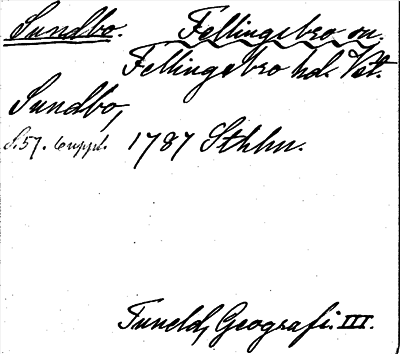 Sundbo. Fellingsbro sn.
Fellingsbro hd. Vstm.
Sundbo,
S. 57. 6 uppl. 1787 Sthlm.
Tuneld, Geografi. III.